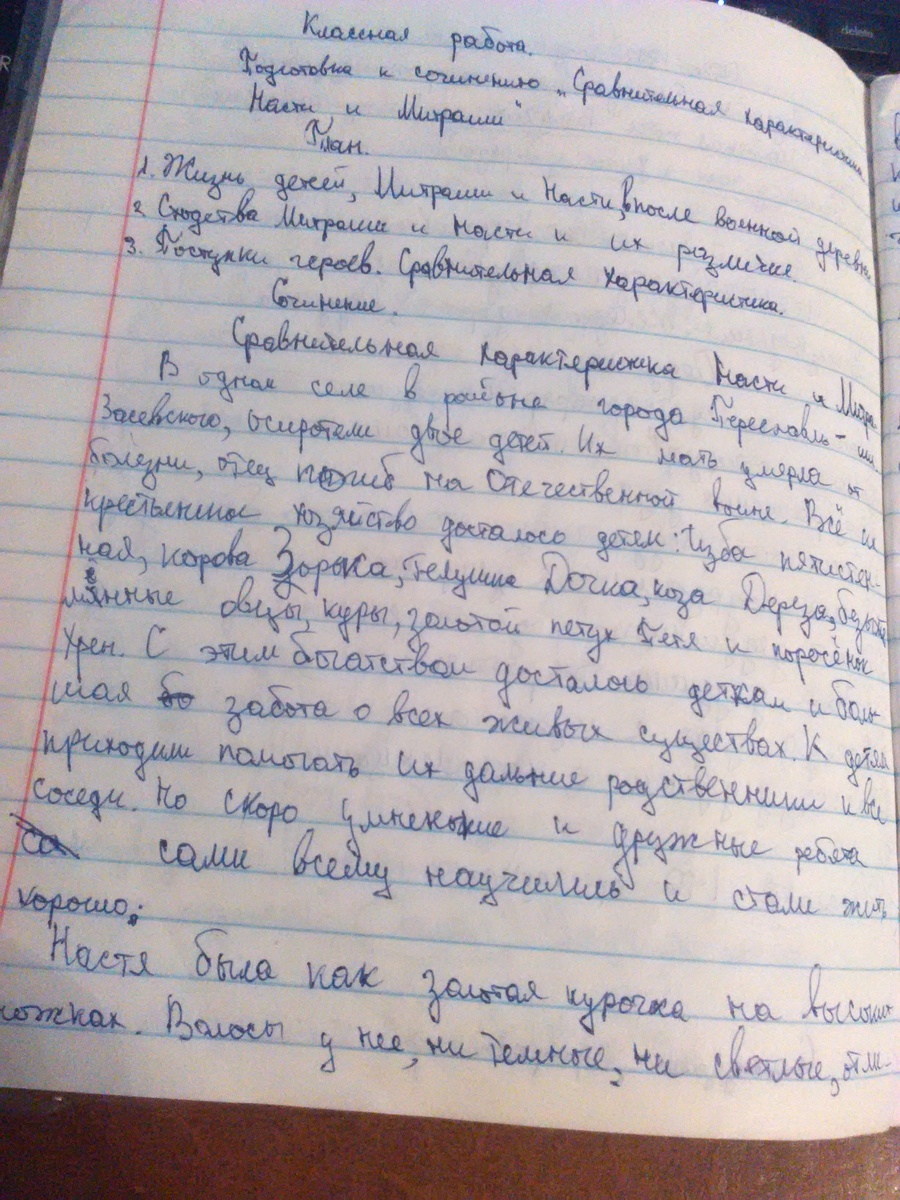 Классная работа.
Подготовка к сочинению „Сравнительная характеристика
Насти и Митраши"
План.
1. Жизнь детей, Митраши и Насти, в после военной деревне
2. Сходства Митраши и Насти и их различие.
3. Поступки героев. Сравнительная характеристика.
Сочинение.
Сравнительная характеристика Насти и Митра-
В одном селе в районе города Переславль-
Залевского, осиротели двое детей. Их мать умерла от
болезни, отец погиб на Отечественной войне. Всё
крестьянское хозяйство досталось детям: Изба пятистен-
ная, корова Зорька, телушка Дочка, коза Дереза, безымя
лянные овцы, куры, золотой петух Петя и поросёнок
Хрен. С этим богатством досталось деткам и боль
шая забота о всех живых существах. К детям
приходили помогать их дальние родственники и все
соседи. Но скоро умненькие и дружные ребята
са сами всему научились и стали жить
хорошо.
Настя была как золотая курочка на высоких
ножках. Волосы у нее, ни темные, ни светлые, отли-
delete